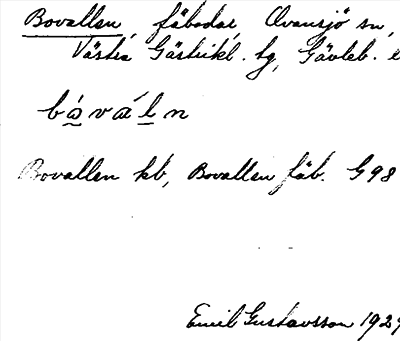 Bovallen, fäbodar, Ovansjö sn,
Västra Gästrikl. tg, Gävleb. l
bo̲´va´l̲n
Bovallen kb, Bovallen fäb. G98
Emil Gustavsson 1929